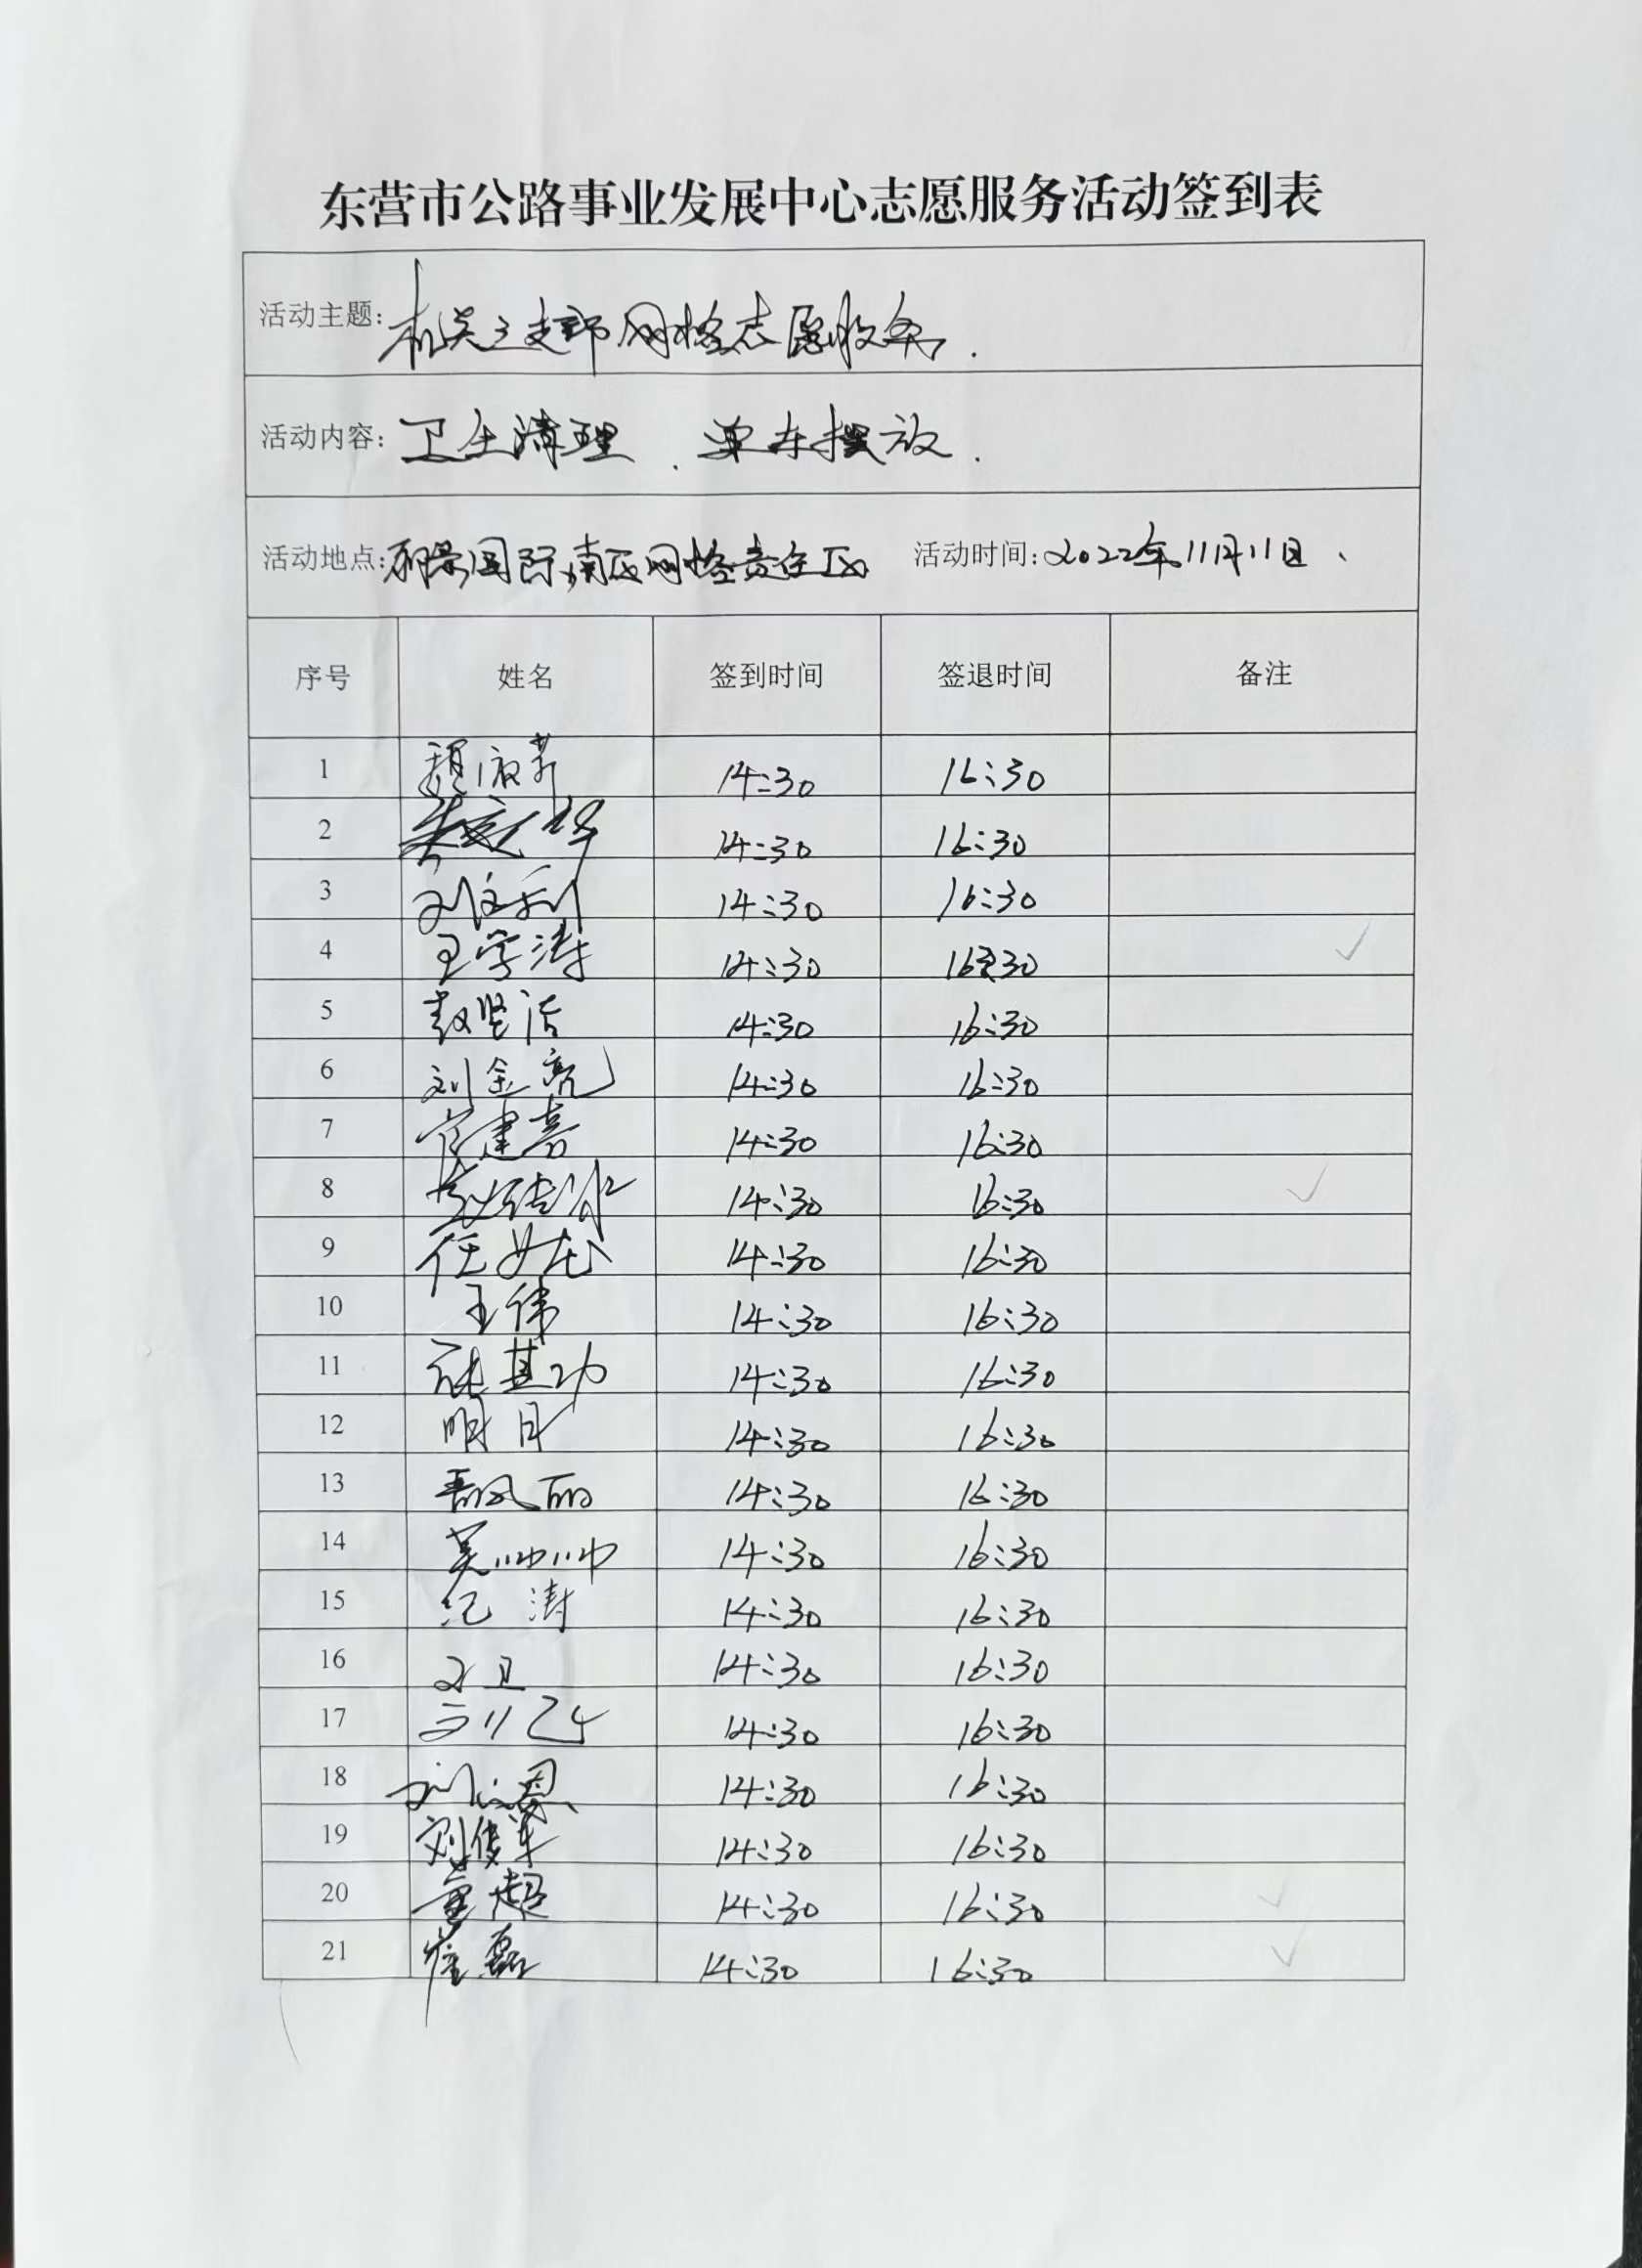 东营市公路事业发展中心志愿服务活动签到表
活动主题: 机关三支部网格志愿服务.
活动内容: 卫生清理、单车摆放.
活动地点: 国际南区网格责任区 活动时间: 2022年11月11日、
序号 姓名 签到时间 签退时间 备注
1 14:30 16:30
2 14:30 16:30
3 14:30 16:30
4 王学涛 14:30 16:30 ✓
5 14:30 16:30
6 刘金亮 14:30 16:30
7 14:30 16:30
8 14:30 16:30 ✓
9 14:30 16:30
10 王伟 14:30 16:30
11 张其功 14:30 16:30
12 明月 14:30 16:30
13 14:30 16:30
14 吴帅帅 14:30 16:30
15 纪涛 14:30 16:30
16 14:30 16:30
17 14:30 16:30
18 14:30 16:30
19 刘俊华 14:30 16:30
20 董超 14:30 16:30 ✓
21 崔磊 14:30 16:30 ✓